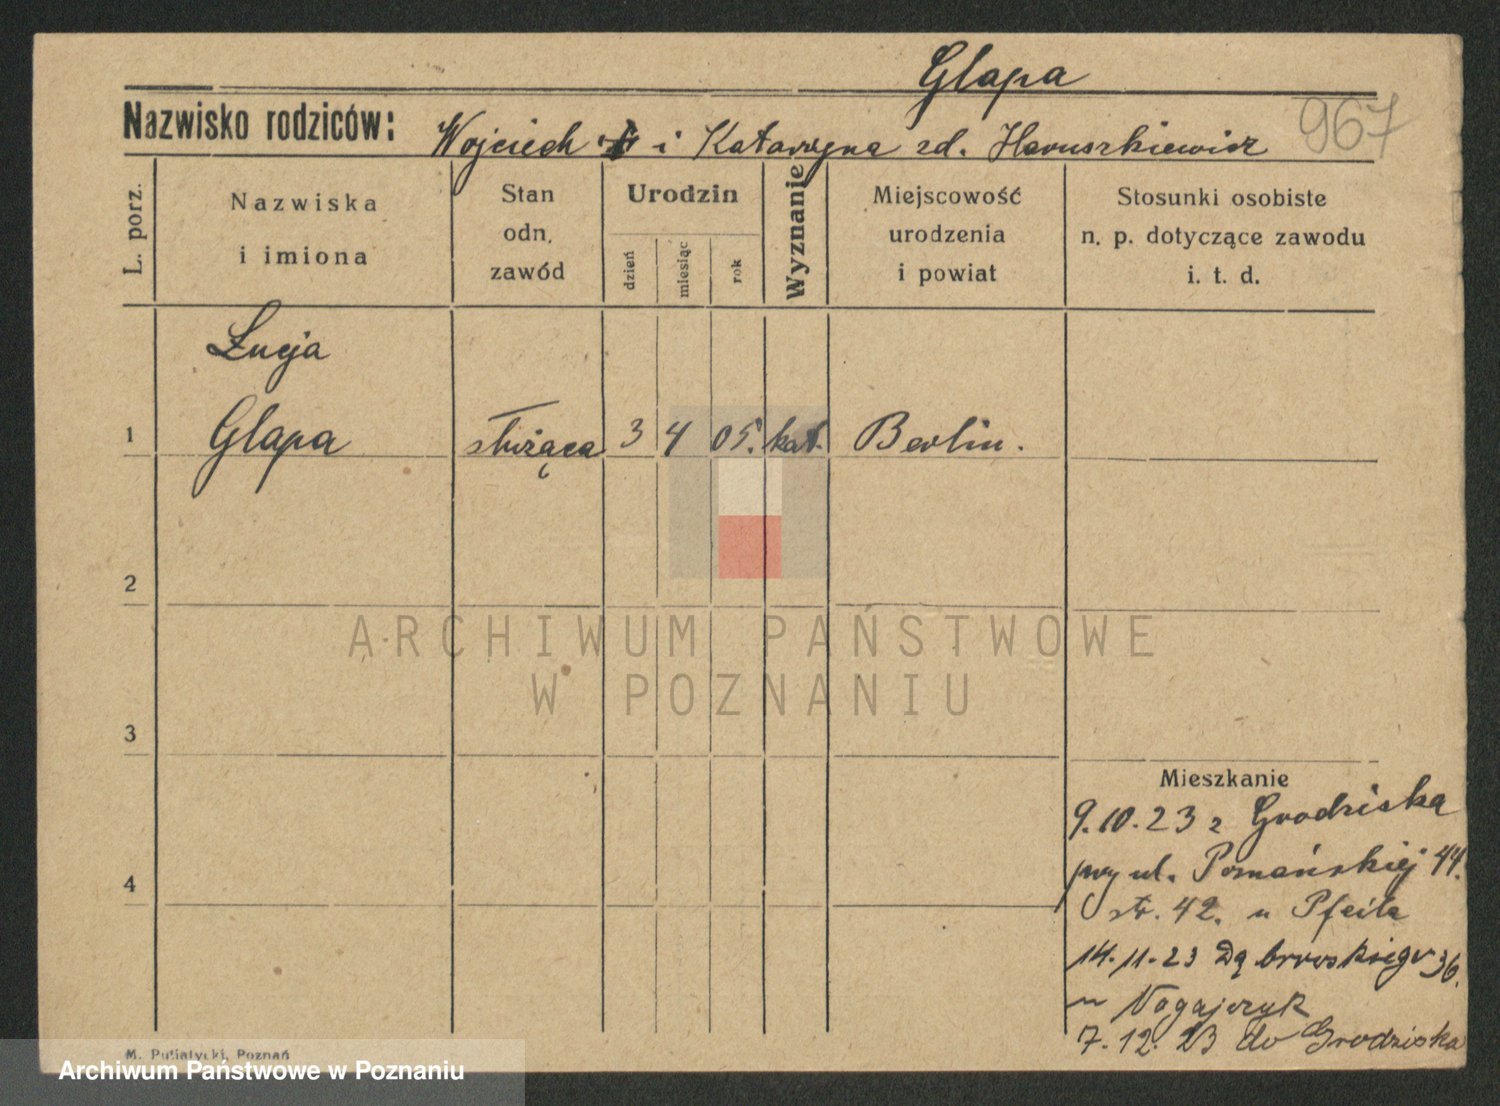 Glapa
967
Nazwisko rodziców: Wojciech i Katarzyna zd. Haruszkiewicz
L. porz.
Nazwiska
i imiona
Stan
odn.
zawód
Urodzin
dzień
miesiąc
rok
Wyznanie
Miejscowość
urodzenia
i powiat
Stosunki osobiste
n. p. dotyczące zawodu
i. t. d.
Łucja
1 Glapa służąca 3 4 05. kat. Berlin.
2
ARCHIWUM PAŃSTWOWE
W POZNANIU
3
Mieszkanie
9.10.23 z Grodziska
przy ul. Poznańskiej 44.
str. 42. u Pfeila
4
14.11.23 Dąbrowskiego 36.
u Nogajczyk
7.12.23 do Grodziska
M. Putiatycki, Poznań
Archiwum Państwowe w Poznaniu